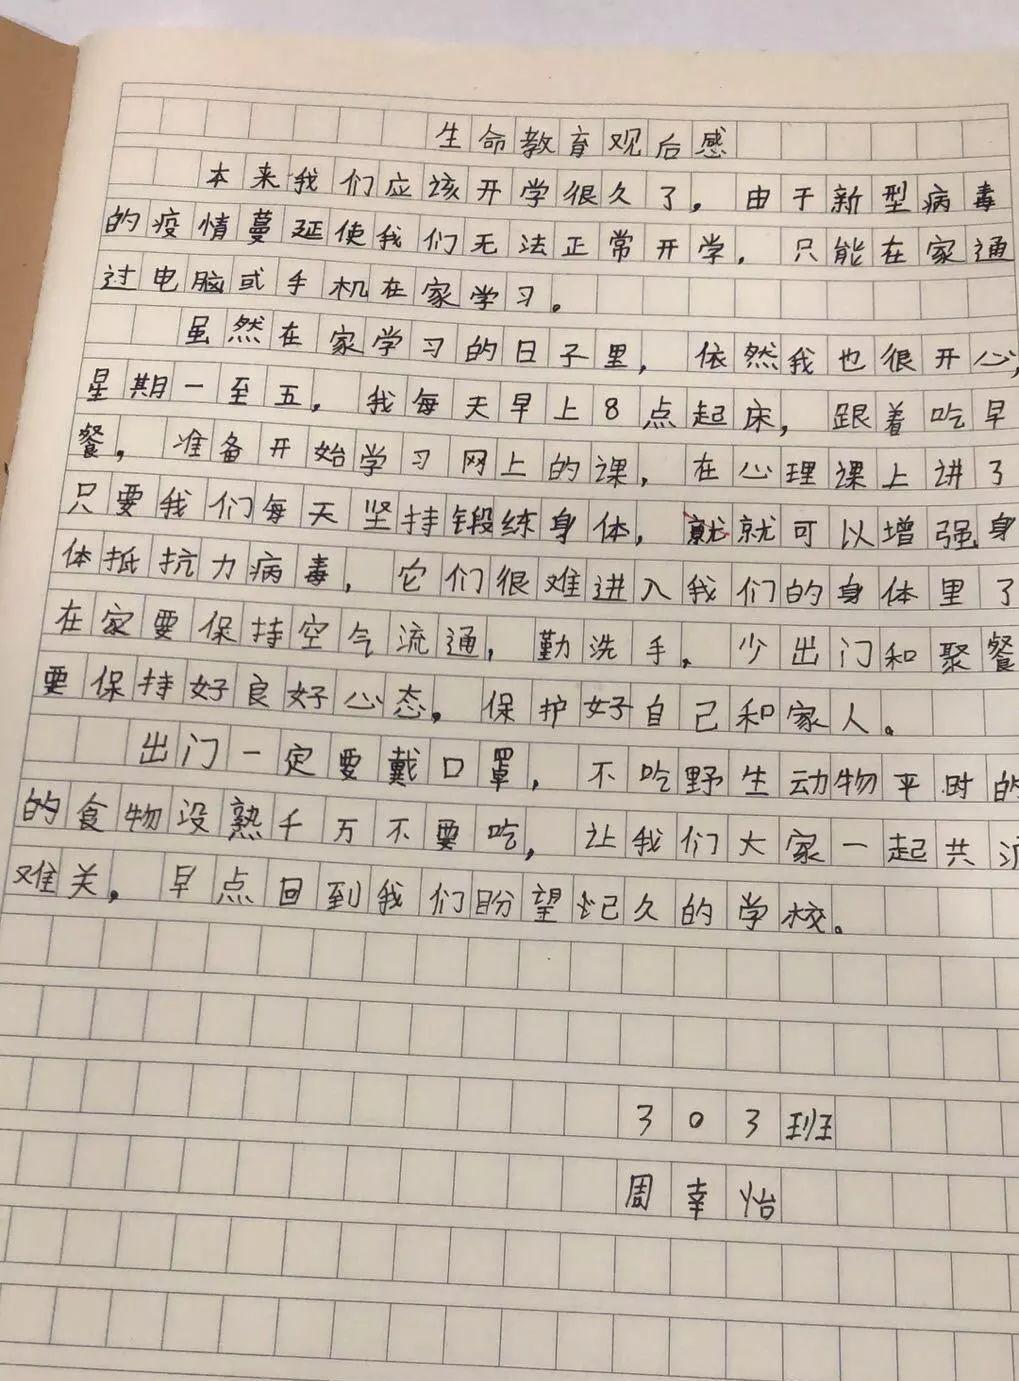 生命教育观后感
本来我们应该开学很久了，由于新型病毒
的疫情蔓延使我们无法正常开学，只能在家通
过电脑或手机在家学习。
虽然在家学习的日子里，依然我也很开心，
星期一至五，我每天早上8点起床，跟着吃早
餐，准备开始学习网上的课，在心理课上讲了
只要我们每天坚持锻练身体，就可以增强身
体抵抗力病毒，它们很难进入我们的身体里了
在家要保持空气流通，勤洗手，少出门和聚餐
要保持好良好心态，保护好自己和家人。
出门一定要戴口罩，不吃野生动物平时的
的食物没熟千万不要吃，让我们大家一起共
难关，早点回到我们盼望已久的学校。
303班
周幸怡